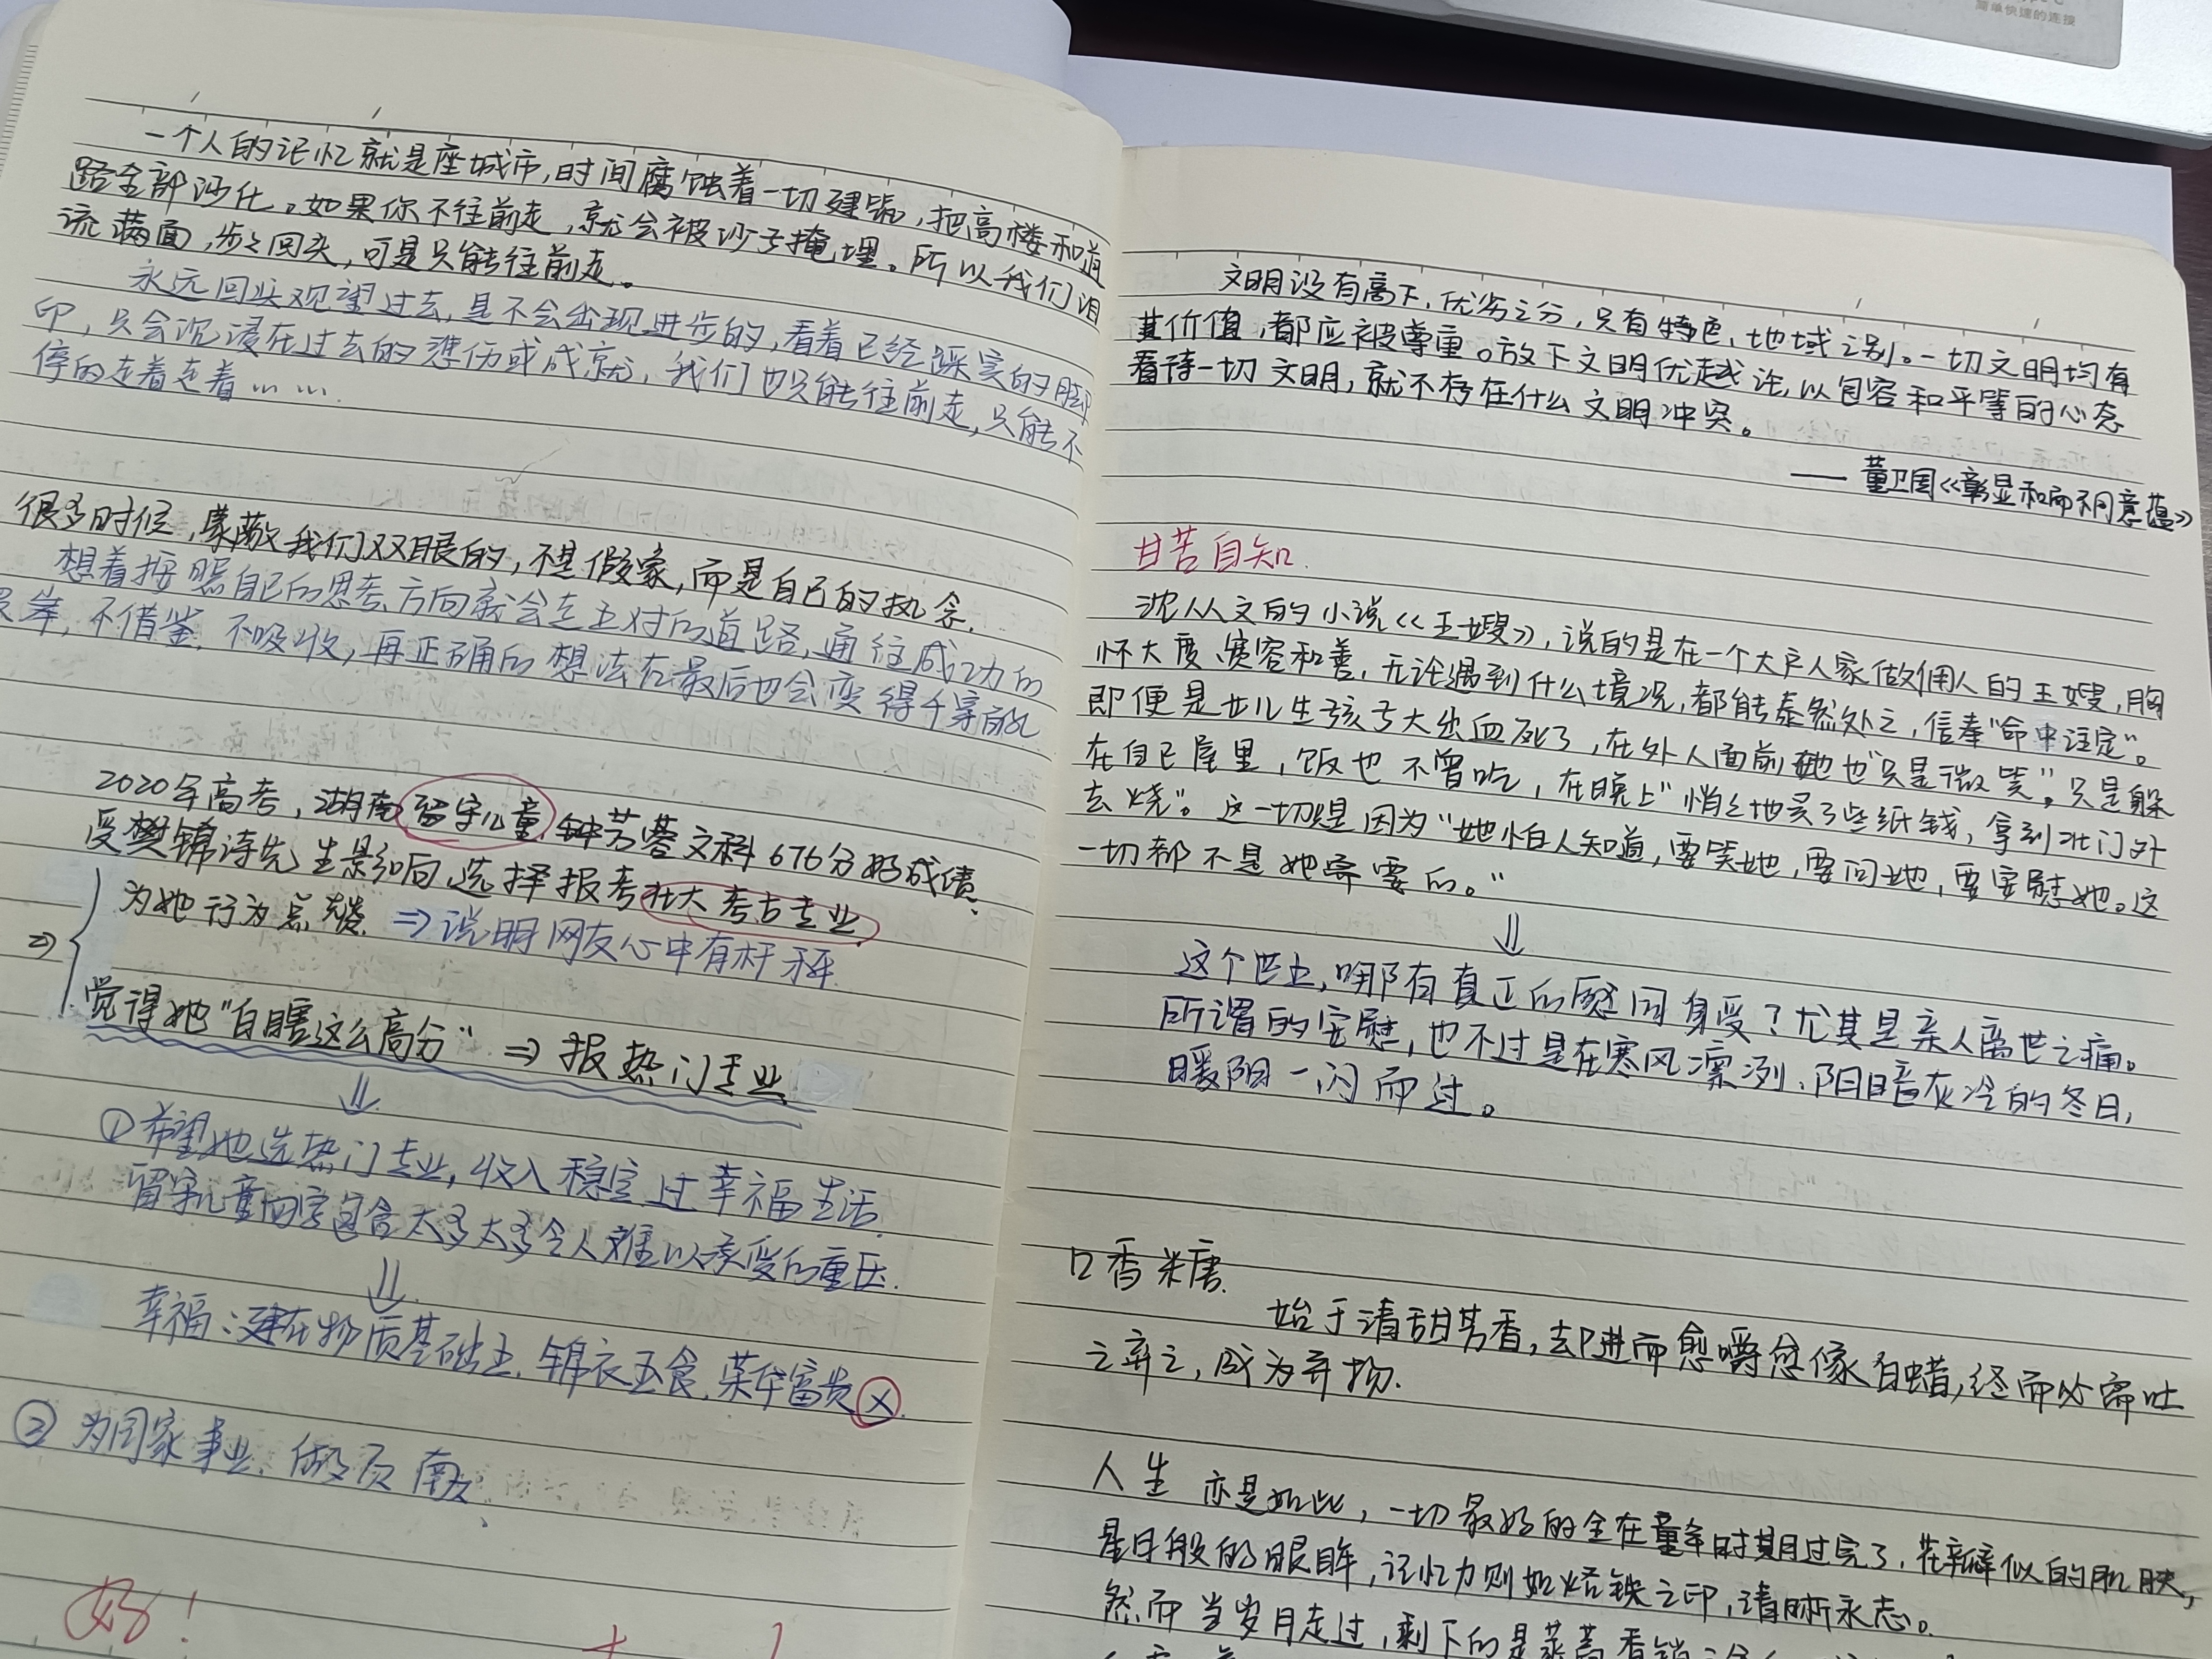 简单快速的连接
一个人的记忆就是座城市,时间腐蚀着一切建筑,把高楼和道
路全部沙化。如果你不往前走,就会被沙子掩埋。所以我们泪
流满面,步步回头,可是只能往前走。
永远回头观望过去,是不会出现进步的,看着已经踩实的脚
印,只会沉浸在过去的悲伤或成就,我们也只能往前走,只能不
停的走着走着……
很多时候,蒙蔽我们双眼的,不是假象,而是自己的执念.
想着按照自己的思考方向就会走上对的道路,通往成功的
不借鉴.不吸收,再正确的想法在最后也会变得千穿
2020年高考,湖南留守儿童钟芳蓉文科676分好成绩、
受樊锦诗先生影响选择报考北大考古专业.
为她行为点赞 ⇒说明网友心中有杆秤.
⇒
觉得她"白瞎这么高分" ⇒报热门专业
⇓
①希望她选热门专业,收入稳定过幸福生活.
留守儿童四字包含太多太多令人难以承受的重压.
⇓
幸福:建在物质基础上.锦衣玉食.荣华富贵ⓧ.
② 为国家事业、做贡献、
好!
文明没有高下,优劣之分,只有特色,地域之别。一切文明均有
其价值,都应被尊重。放下文明优越论,以包容和平等的心态
看待一切文明,就不存在什么文明冲突。
——董卫国《彰显和而不同意蕴》
甘苦自知.
沈从文的小说《王嫂》,说的是在一个大户人家做佣人的王嫂,胸
怀大度、宽容和善,无论遇到什么境况,都能泰然处之,信奉"命中注定"。
即便是女儿生孩子大出血死了,在外人面前她也"只是微笑"。只是躲
在自己屋里,饭也不曾吃,在晚上"悄悄地买了些纸钱,拿到北门外
去烧"。这一切是因为"她怕人知道,要笑她,要问她,要安慰她。这
一切都不是她需要的。"
⇓
这个世上,哪有真正的感同身受?尤其是亲人离世之痛。
所谓的安慰,也不过是在寒风凛冽、阴暗灰冷的冬日,
暖阳一闪而过。
口香糖.
始于清甜芳香,却进而愈嚼愈像白蜡,终而必需吐
之弃之,成为弃物.
人生亦是如此,一切最好的全在童年时期过完了.花瓣似的肌肤,
星月般的眼眸,记忆力则如烙铁之印,清晰永志。
然而当岁月走过,剩下的是